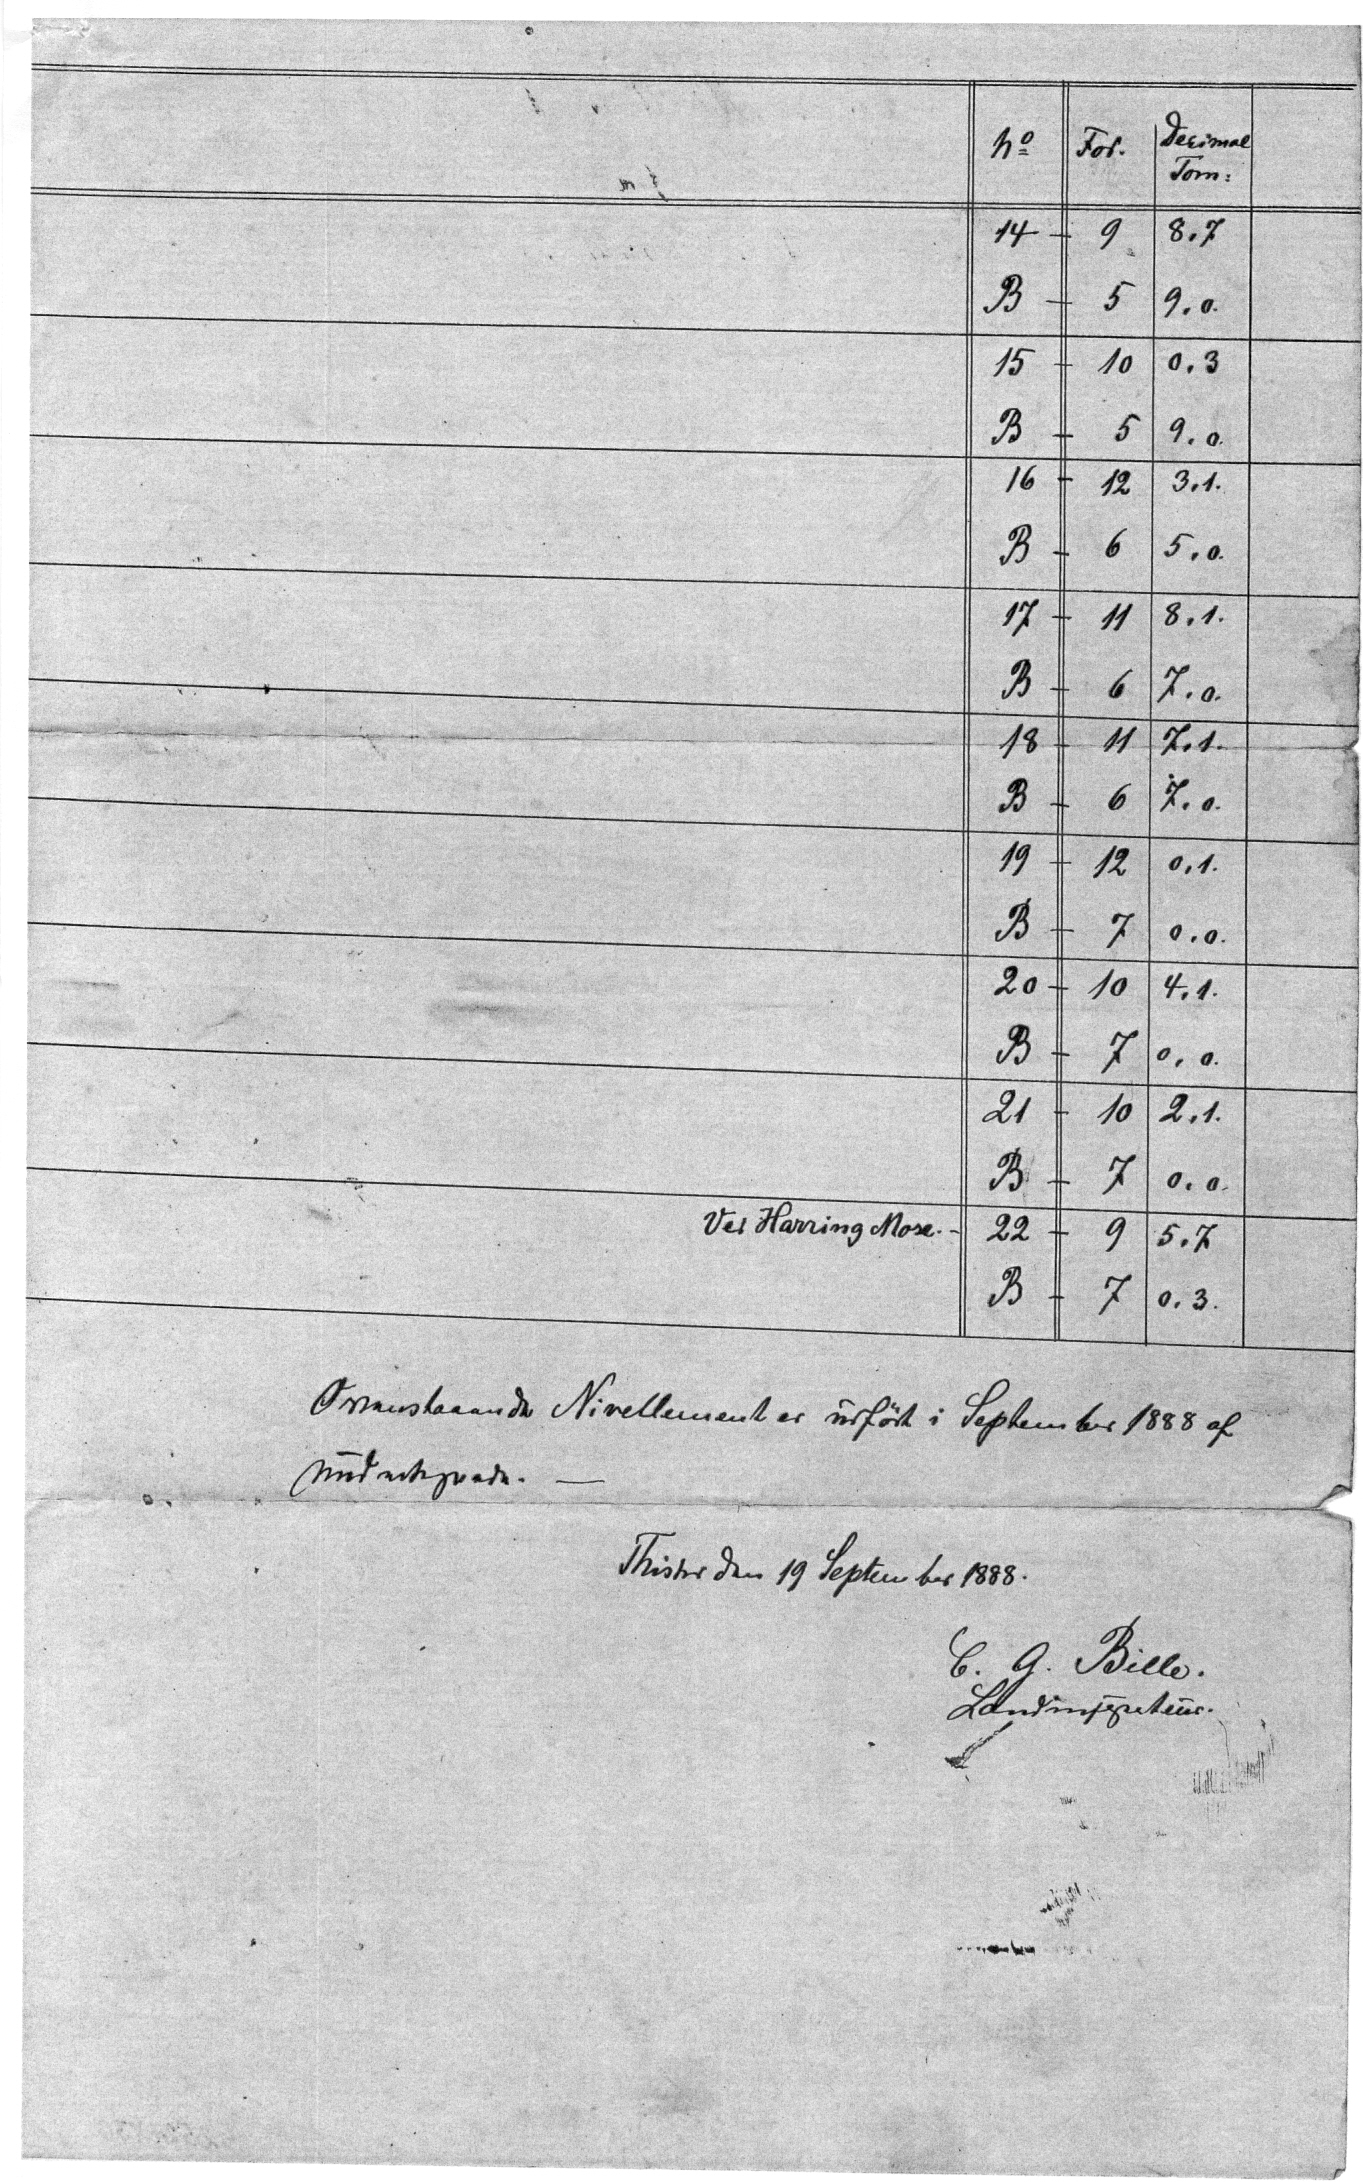 No Fod. Decimal
Tom:
14 - 9 8.7
B - 5 9.0.
15 - 10 0.3
B - 5 9.0.
16 - 12 3.1.
B - 6 5.0.
17 - 11 8.1.
B - 6 7.0.
18 - 11 7.1.
B - 6 7.0.
19 - 12 0.1.
B - 7 0.0.
20 - 10 4.1.
B - 7 0.0.
21 - 10 2.1.
B - 7 0.0.
Ved Harring Mose. - 22 - 9 5.7
B - 7 0.3.
Ovenstaaende Nivellement er udført i September 1888 af
undertegnede. —
Thisted den 19 September 1888.
C. G. Bille.
Landinspecteur.